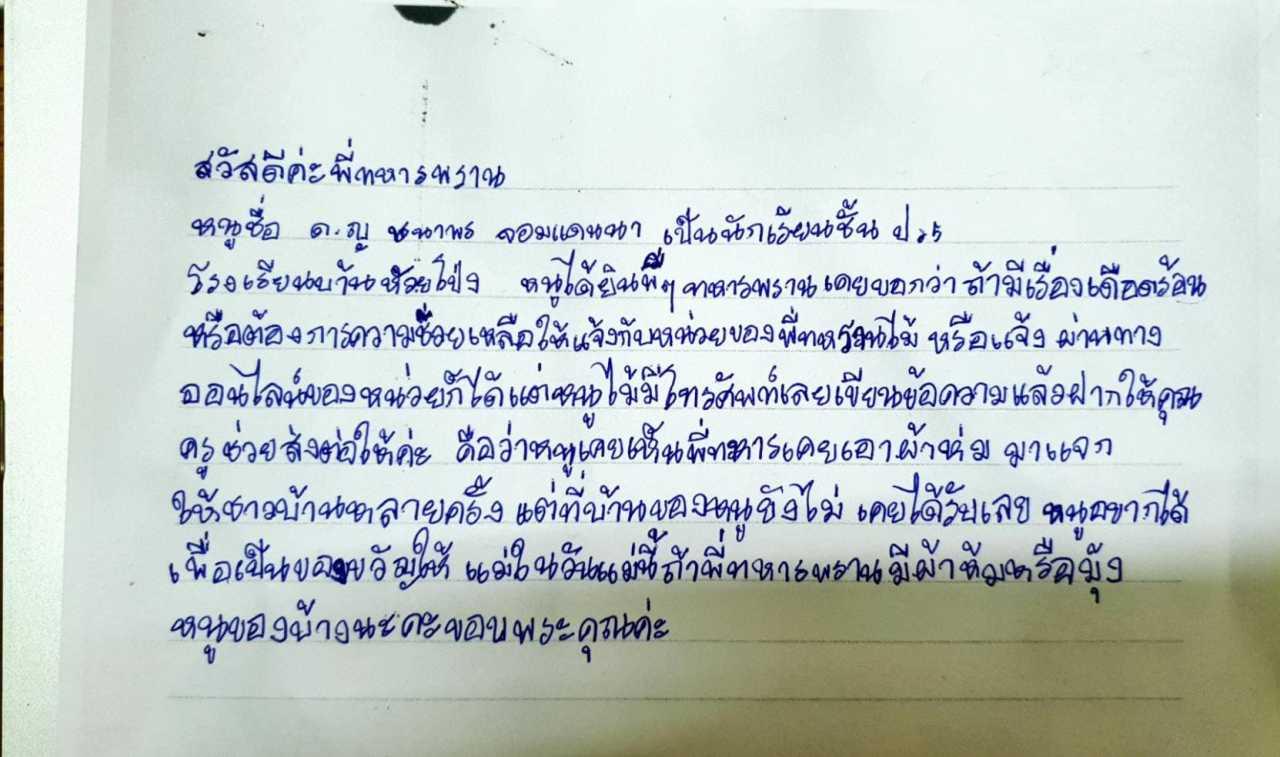 สวัสดีค่ะพี่ทหารพราน
หนูชื่อ ด.ญ ชนาพร จอมแดนนา เป็นนักเรียนชั้น ป.5
โรงเรียนบ้านห้วยโป่ง หนูได้ยินพี่ๆ ทหารพรานเคยบอกว่า ถ้ามีเรื่องเดือดร้อน
หรือต้องการความช่วยเหลือให้แจ้งกับหน่วยของพี่ หรือแจ้ง ผ่านทาง
ออนไลน์ของหน่วยก็ได้แต่หนูไม้มีโทรศัพท์เลยเขียนข้อความแล้วฝากให้คุณ
ครูช่วยส่งต่อให้ค่ะ คือว่าหนูเคยเห็นพี่ทหารเคยเอาผ้าห่ม มาแจก
ให้ชาวบ้านหลายครั้ง แต่ที่บ้านของหนูยังไม่ เคยได้รับเลย หนูอยากได้
เพื่อเป็นของขวัญให้ แม่ในวันแม่นี้ถ้าพี่ทหารพรานมีผ้าห่มหรือมุ้ง
หนูของบ้างนะคะขอบพระคุณค่ะ